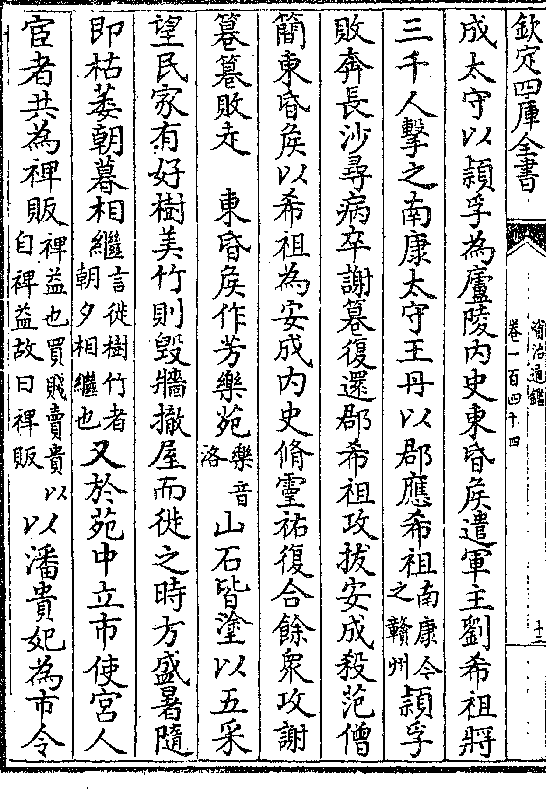 欽定四庫全書
資治通鑑
卷一百四十四
十三
成太守以頴孚為廬陵内史東昏侯遣軍主劉希祖將
三千人擊之南康太守王丹以郡應希祖南康今之贛州頴孚
敗奔長沙尋病卒謝篹復還郡希祖攻拔安成殺范僧
簡東昏侯以希祖為安成内史脩靈祐復合餘衆攻謝
篹篹敗走　東昏侯作芳樂苑樂音洛山石皆塗以五采
望民家有好樹美竹則毁牆撤屋而徙之時方盛暑隨
即枯萎朝暮相繼言從樹竹者朝夕相繼也又於苑中立市使宮人
宦者共為裨販裨益也買賤賣貴以自裨益故曰裨販以潘貴妃為市令